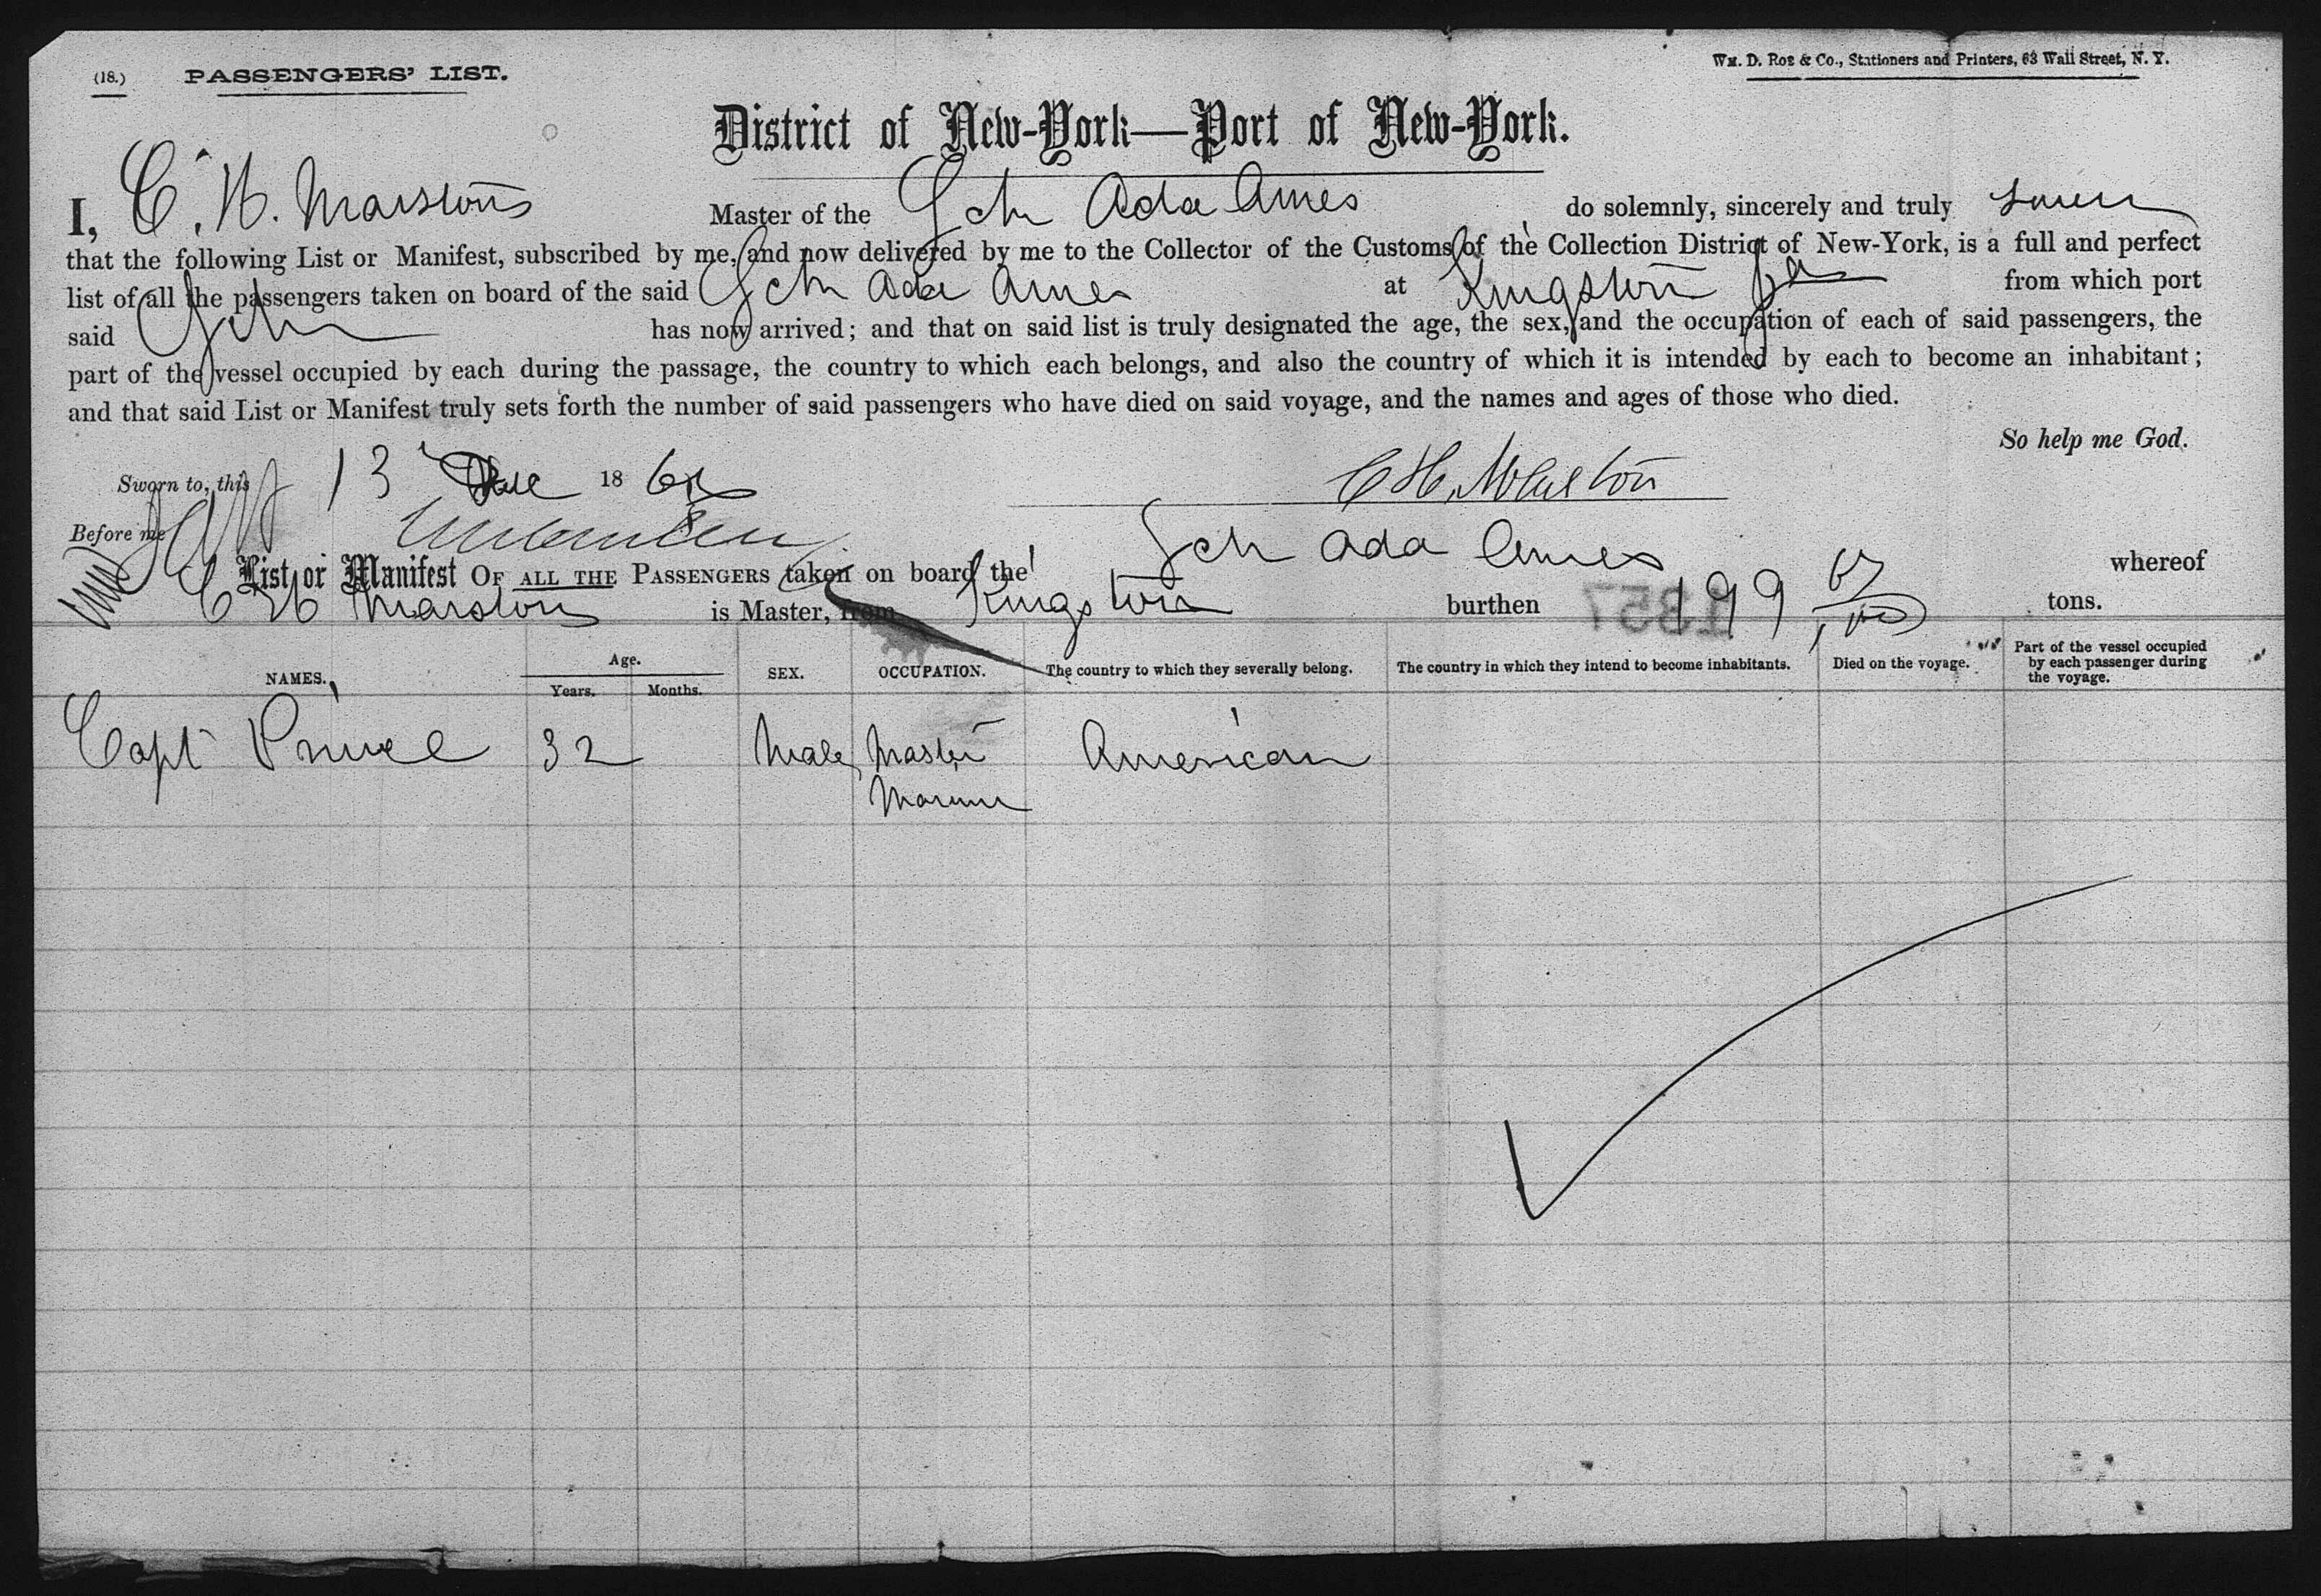 (18.) PASSENGERS' LIST.
Wm. D. Roe & Co., Stationers and Printers, 63 Wall Street, N. Y.
District of New-York—Port of New-York.
I, C. H. Marston Master of the Sch Ada Ames do solemnly, sincerely and truly swear
that the following List or Manifest, subscribed by me, and now delivered by me to the Collector of the Customs of the Collection District of New-York, is a full and perfect
list of all the passengers taken on board of the said Sch Ada Ames at Kingston Ja from which port
said Sch has now arrived; and that on said list is truly designated the age, the sex, and the occupation of each of said passengers, the
part of the vessel occupied by each during the passage, the country to which each belongs, and also the country of which it is intended by each to become an inhabitant;
and that said List or Manifest truly sets forth the number of said passengers who have died on said voyage, and the names and ages of those who died.
So help me God.
Sworn to, this 13 Dec 18
C H. Marston
Before me
List or Manifest OF ALL THE PASSENGERS taken on board the Sch Ada Ames whereof
C H Marston is Master, from Kingston burthen 199 67/100 tons.
1357
NAMES. Age. Years. Months. SEX. OCCUPATION. The country to which they severally belong. The country in which they intend to become inhabitants. Died on the voyage. Part of the vessel occupied by each passenger during the voyage.
Capt Prince 32 Male Master American
Mariner